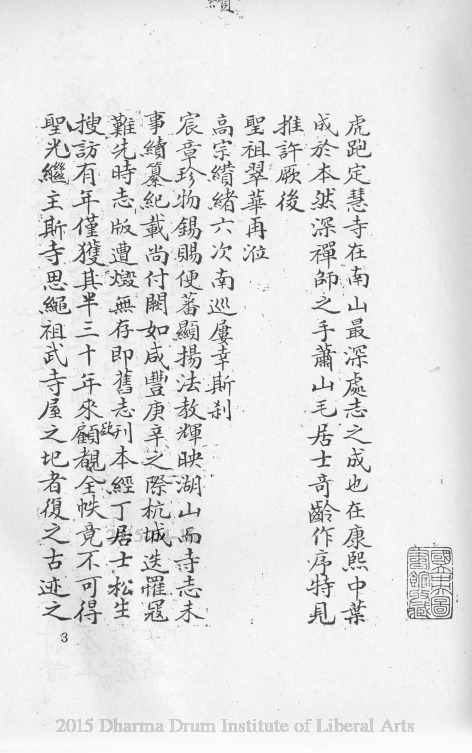 虎跑定慧寺在南山最深處志之成也在康熙中葉
成於本然深禪師之手蕭山毛居士奇齡作序特見
推許厥後
聖祖翠華再涖
高宗纘緒六次南巡屢幸斯刹
宸章珍物錫賜便蕃顯揚法教輝映湖山而寺志未
事續纂紀載尚付闕如咸豐庚辛之際杭城迭罹寇
難先時志版遭燬無存即舊志刊本經丁居士松生
搜訪有年僅獲其半三十年來顧欲覩全帙竟不可得
聖光繼主斯寺思繩祖武寺屋之圮者復之古迹之
3
國東圖書館收藏
2015 Dharma Drum Institute of Liberal Arts